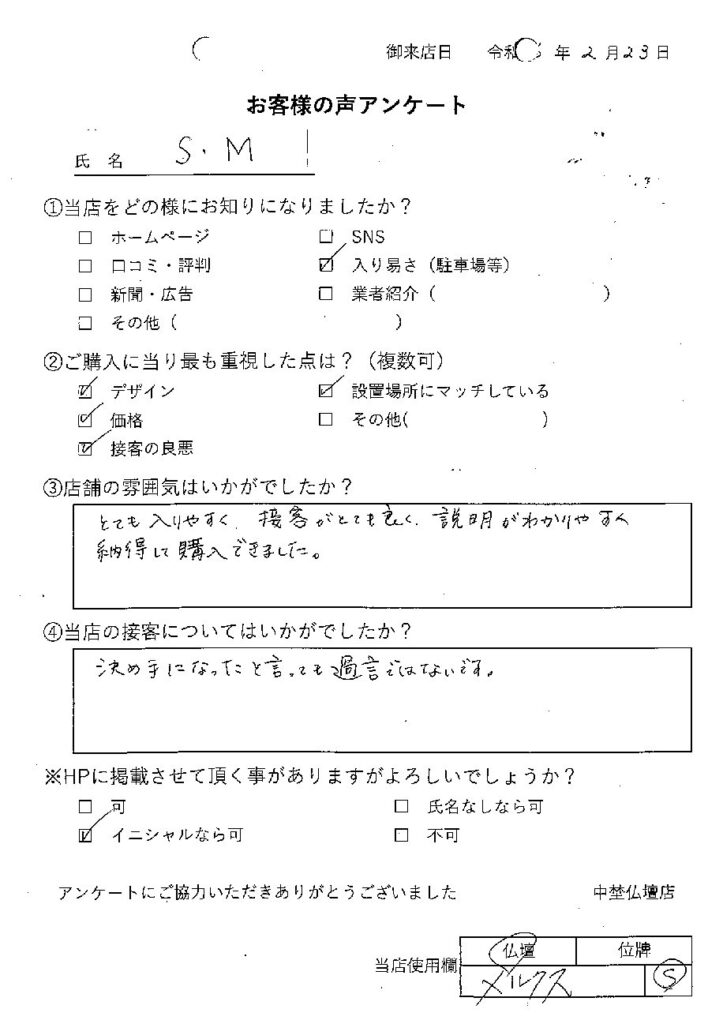 御来店日 令和 年 2 月 23 日
お客様の声アンケート
氏 名 S.M
①当店をどの様にお知りになりましたか？
□ ホームページ □ SNS
□ 口コミ・評判 ☑ 入り易さ（駐車場等）
□ 新聞・広告 □ 業者紹介（ ）
□ その他（ ）
②ご購入に当り最も重視した点は？（複数可）
☑ デザイン ☑ 設置場所にマッチしている
☑ 価格 □ その他( )
☑ 接客の良悪
③店舗の雰囲気はいかがでしたか？
とても入りやすく、接客がとても良く、説明がわかりやすく
納得して購入できました。
④当店の接客についてはいかがでしたか？
決め手になったと言っても過言ではないです。
※HPに掲載させて頂く事がありますがよろしいでしょうか？
□ 可 □ 氏名なしなら可
☑ イニシャルなら可 □ 不可
アンケートにご協力いただきありがとうございました 中埜仏壇店
当店使用欄 仏壇 位牌
メルクス Ⓢ